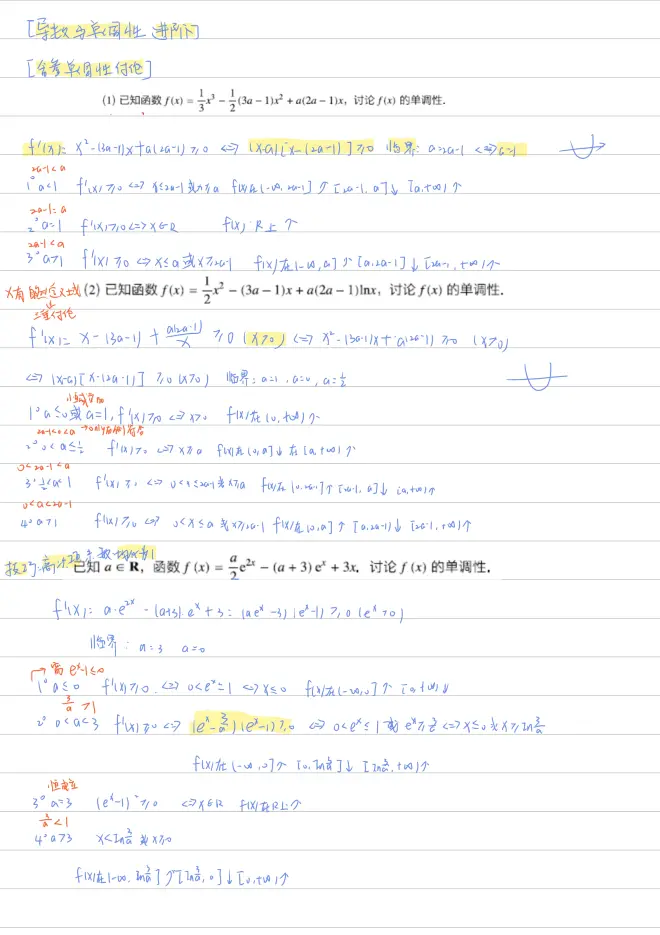 [导数与单调性 进阶]
[含参单调性讨论]
(1) 已知函数 f(x) = 1/3 x³ − 1/2 (3a − 1)x² + a(2a − 1)x，讨论 f(x) 的单调性.
f'(x)= x²-(3a-1)x+a(2a-1) ≥0 <=> (x-a)[x-(2a-1)] ≥0 临界: a=2a-1 <=> a=1
2a-1<a
1° a<1 f'(x)≥0 <=> x≤2a-1 或 x≥a f(x)在(-∞, 2a-1]↑ [2a-1, a]↓ [a,+∞)↑
2a-1=a
2° a=1 f'(x)≥0 <=> x∈R f(x) R上↑
2a-1<a
3° a>1 f'(x)≥0 <=> x≤a 或 x≥2a-1 f(x)在(-∞,a]↑ [a,2a-1]↓ [2a-1,+∞)↑
(2) 已知函数 f(x) = 1/2 x² − (3a − 1)x + a(2a − 1)lnx，讨论 f(x) 的单调性.
f'(x)= x-(3a-1)+ a(2a-1)/x ≥0 (x>0) <=> x²-(3a-1)x+a(2a-1) ≥0 (x>0)
<=> (x-a)[x-(2a-1)] ≥0 (x>0) 临界: a=1, a=0, a=1/2
1° a≤0 或 a=1, f'(x)≥0 <=> x>0 f(x)在(0,+∞)↑
2a-1<0<a
2° 0<a≤1/2 f'(x)≥0 <=> x≥a f(x)在(0,a]↓ 在[a,+∞)↑
0<2a-1<a
3° 1/2<a<1 f'(x)≥0 <=> 0<x≤2a-1 或 x≥a f(x)在(0,2a-1]↑ [2a-1,a]↓ [a,+∞)↑
0<a<2a-1
4° a>1 f'(x)≥0 <=> 0<x≤a 或 x≥2a-1 f(x)在(0,a]↑ [a,2a-1]↓ [2a-1,+∞)↑
技巧: 高次项系数
已知 a ∈ R，函数 f(x) = a/2 e²ˣ − (a + 3)eˣ + 3x. 讨论 f(x) 的单调性.
f'(x)= a·e²ˣ-(a+3)·eˣ+3 = (aeˣ-3)(eˣ-1)≥0 (eˣ>0)
临界: a=3 a=0
需 eˣ-1≤0
1° a≤0 f'(x)≥0 <=> 0<eˣ≤1 <=> x≤0 f(x)在(-∞,0]↑ [0,+∞)↓
3/a>1
2° 0<a<3 f'(x)≥0 <=> (eˣ-3/a)(eˣ-1)≥0 <=> 0<eˣ≤1 或 eˣ≥3/a <=> x≤0 或 x≥ln3/a
f(x)在(-∞,0]↑ [0,ln3/a]↓ [ln3/a,+∞)↑
恒成立
3° a=3 (eˣ-1)²≥0 <=> x∈R f(x)在R上↑
3/a<1
4° a>3 x<ln3/a 或 x≥0
f(x)在(-∞,ln3/a]↑ [ln3/a,0]↓ [0,+∞)↑